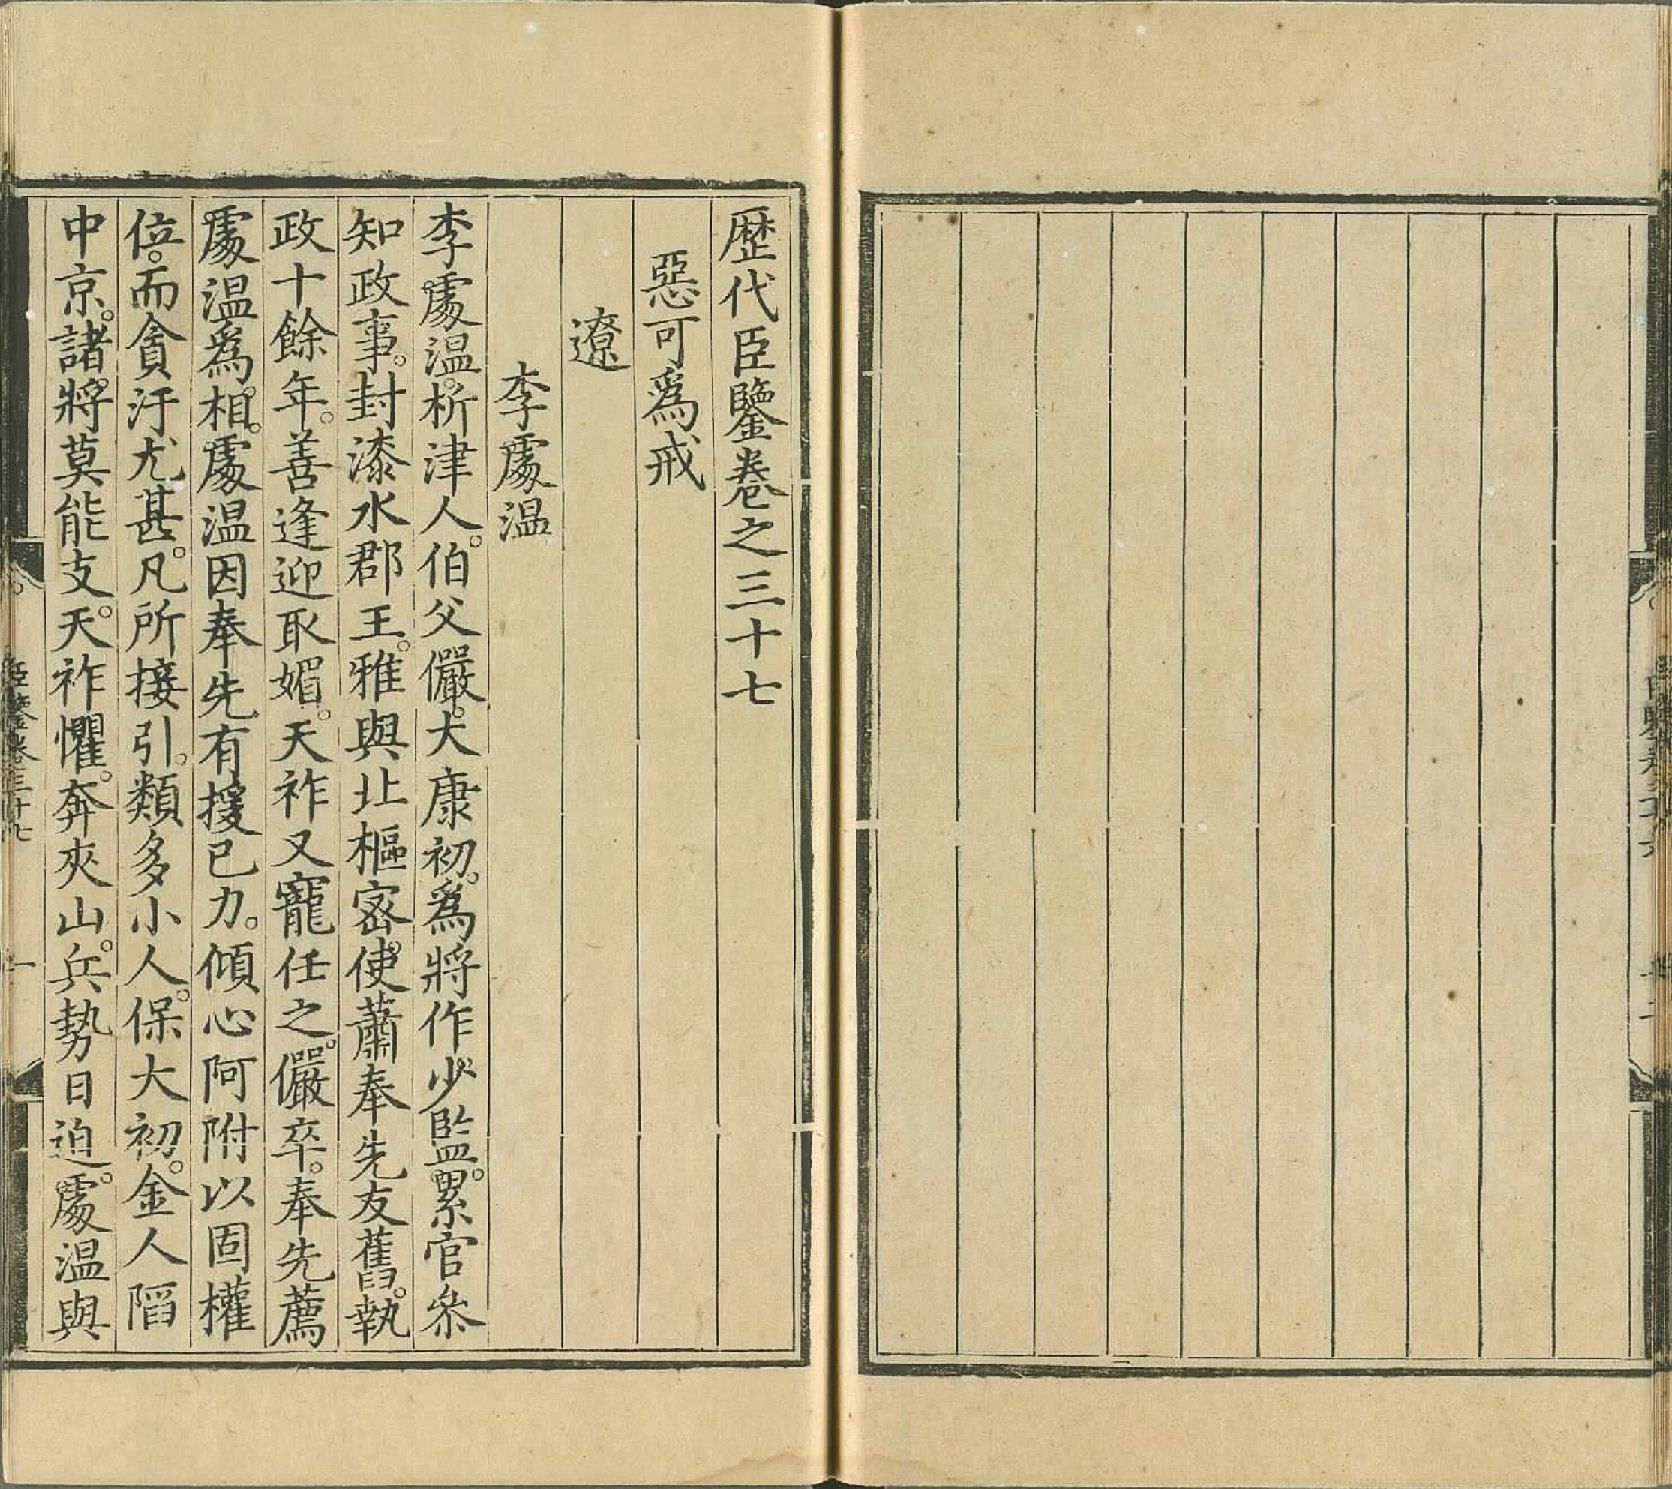 歷代臣鑒卷之三十七
惡可爲戒
遼
李處溫
李處溫。析津人。伯父儼。大康初。爲將作少監。累官叅
知政事。封漆水郡王。雅與北樞密使蕭奉先友舊。執
政十餘年。善逢迎取媚。天祚又寵任之。儼卒。奉先薦
處溫爲相。處溫因奉先有援己力。傾心阿附以固權
位。而貪汙尤甚。凡所接引。類多小人。保大初。金人陷
中京。諸將莫能支。天祚懼。奔夾山。兵勢日迫。處溫與
臣鑒卷三十七
一